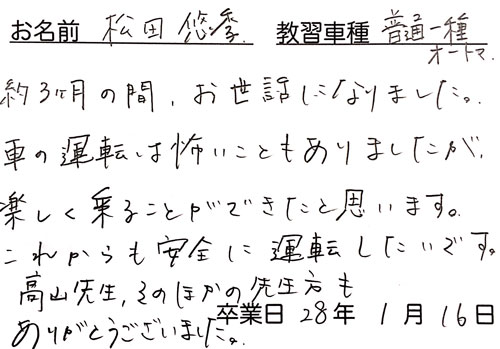 お名前 松田 悠季. 教習車種 普通一種
オートマ.
約3ヶ月の間、お世話になりました。
車の運転は怖いこともありましたが、
楽しく乗ることができたと思います。
これからも安全に運転したいです。
高山先生、そのほかの先生方も
ありがとうございました。
卒業日 28年 1月 16日